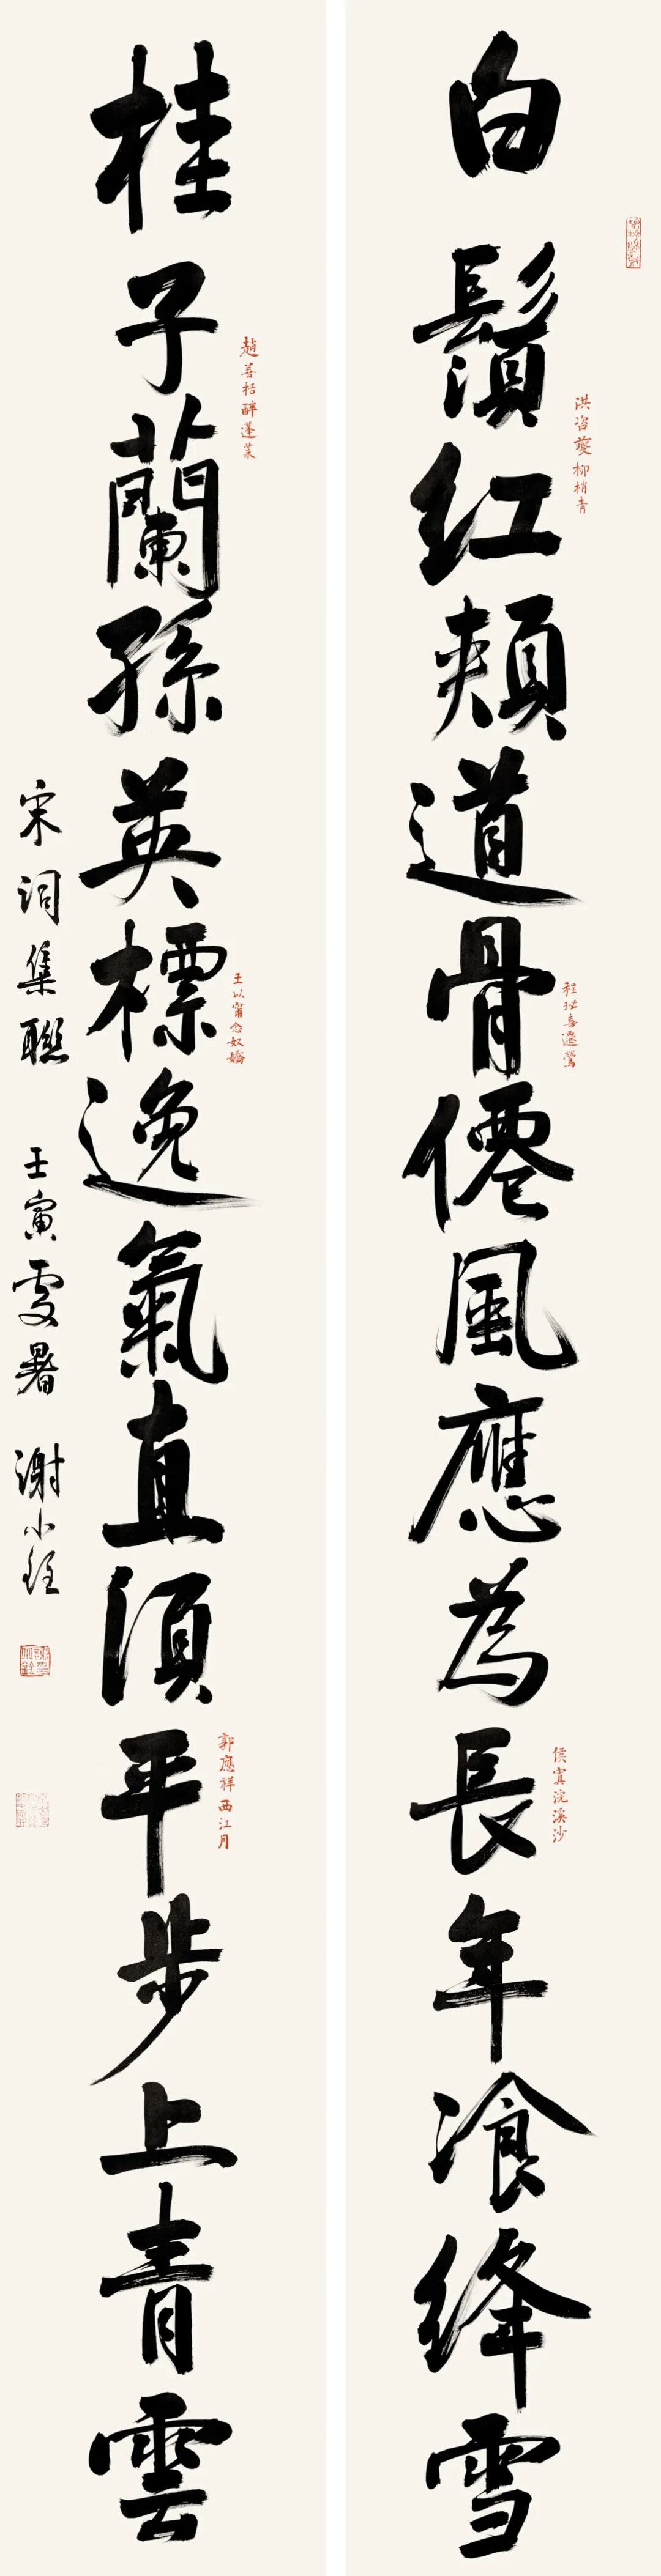 白鬚红頰道骨僊風應為長年飡絳雪
洪咨夔柳梢青
程珌喜遷鶯
侯寘浣溪沙
桂子蘭孫英標逸氣直須平步上青雲
趙善括醉蓬萊
王以甯念奴嬌
郭應祥西江月
宋詞集聯 壬寅處暑 謝小銓